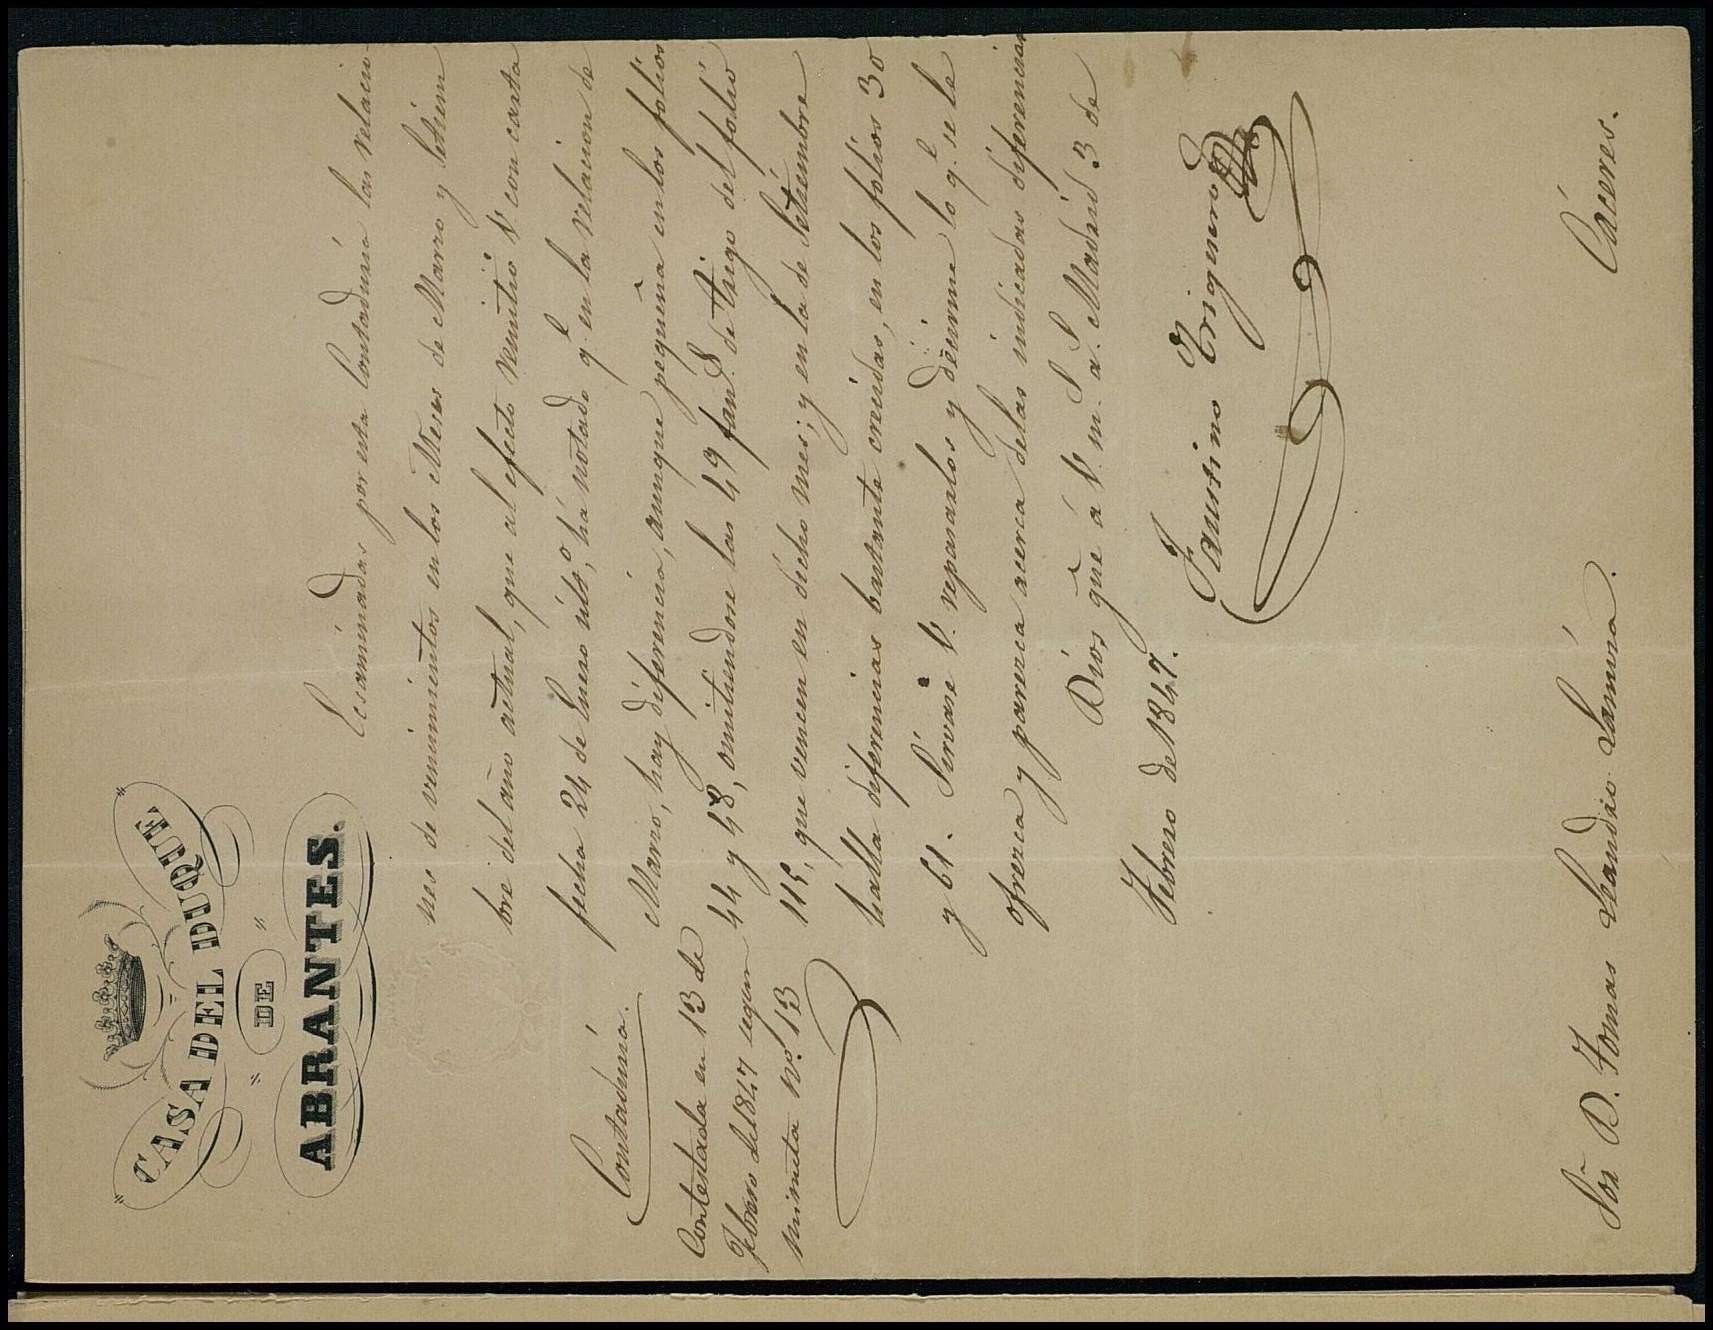 CASA DEL DUQUE
DE
ABRANTES.
Contaduria.
Contestada en 13 de
Febrero de 1847 segun
minuta Nº. 13
Ecsaminadas por esta Contaduria las relacio-
nes de vencimientos en los Meses de Marzo y Setiem
bre del año actual, que al efecto remitió V. con carta
fecha 24 de Enero ulto., há notado qe. en la relacion de
Marzo, hay diferencia, aunque pequeña en los folios
44 y 48, omitiendose las 49 fans. de trigo del folio
115, que vencen en dicho mes; y en la de Setiembre
halla diferencias bastante crecidas, en los folios 30
y 61. Sirvase V. repasarlos y decirme lo qe. se le
ofrezca y parezca acerca de las indicadas diferencias
Dios gũe á V. m. s. a.s Madrid 3 de
Febrero de 1847.
Faustino Trigueros
Sõr D. Tomas Leandro Samira.
Cáceres.